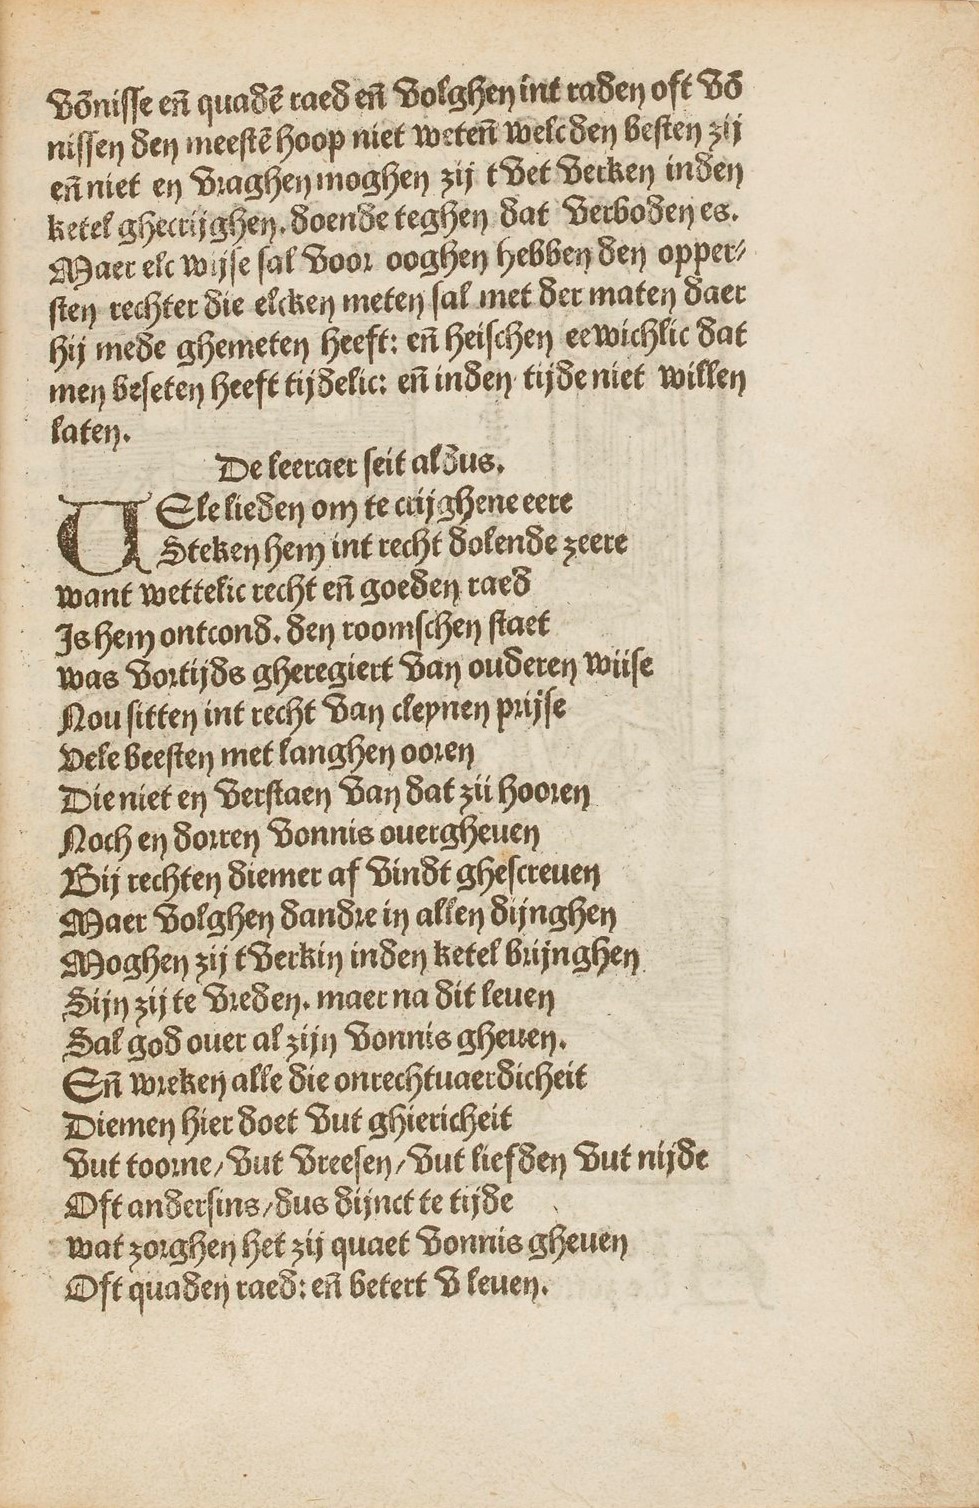 võnisse eñ quadē raed eñ volghen int raden oft vō
nissen den meestē hoop niet weteñ welc den besten zij
eñ niet en vraghen moghen zij tvet vercken inden
ketel ghecrijghen. doende teghen dat verboden es.
Maer elc wijse sal voor ooghen hebben den opper⸗
sten rechter die elcken meten sal met der maten daer
hij mede ghemeten heeft: eñ heischen eewichlic dat
men beseten heeft tijdelic: eñ inden tijde niet willen
laten.
De leeraer seit aldus.
VEle lieden om te crijghene eere
Steken hem int recht dolende zeere
want wettelic recht eñ goeden raed
Is hem ontcond. den roomschen staet
was vortijds gheregiert van ouderen wiise
Nou sitten int recht van cleynen prijse
vele beesten met langhen ooren
Die niet en verstaen van dat zii hooren
Noch en dorren vonnis overgheuen
Bij rechten diemer af vindt ghescreuen
Maer volghen dandre in allen dijnghen
Moghen zij tverkin inden ketel brijnghen
Sijn zij te vreden. maer na dit leuen
Sal god ouer al zijn vonnis gheuen.
Eñ wreken alle die onrechtuaerdicheit
Diemen hier doet vut ghiericheit
vut toorne/ vut vreesen/ vut liefden vut nijde
Oft andersins/ dus dijnct te tijde
wat zorghen het zij quaet vonnis gheuen
Oft quaden raed: eñ betert v leuen.